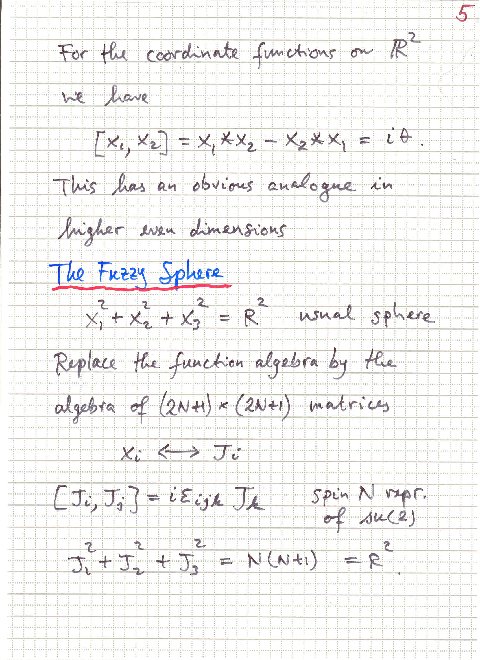 5
For the coordinate functions on ℝ²
we have
[x₁, x₂] = x₁ * x₂ − x₂ * x₁ = iθ.
This has an obvious analogue in
higher even dimensions
The Fuzzy Sphere
x₁² + x₂² + x₃² = R² usual sphere
Replace the function algebra by the
algebra of (2N+1) × (2N+1) matrices
xᵢ ⟷ Jᵢ
[Jᵢ, Jⱼ] = iεᵢⱼₖ Jₖ spin N repr.
of su(2)
J₁² + J₂² + J₃² = N(N+1) = R².